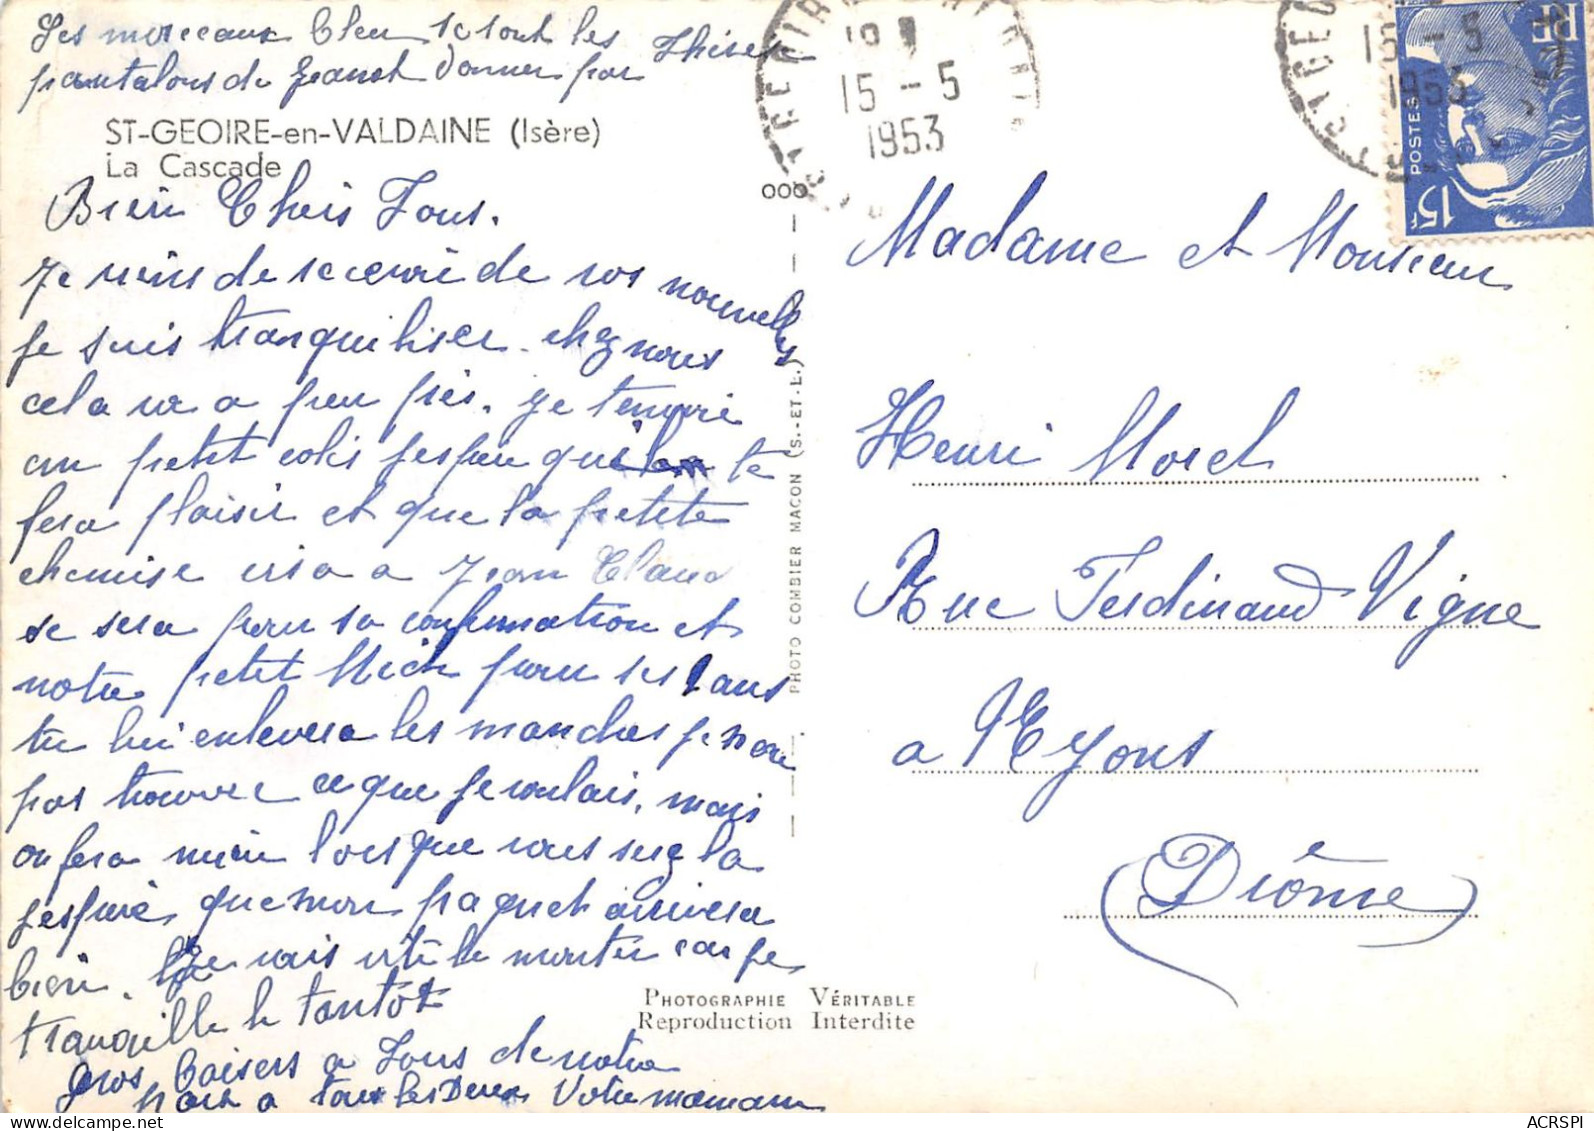 Les morceaux bleu se sont les
pantalons de Jeanot donner par
ST-GEOIRE-en-VALDAINE (Isère)
La Cascade
Bien Chers Tous.
Je viens de recevoir de vos nouvelles
je suis tranquiliser. chez nous
cela va a peu près. Je t'envoie
un petit colis j'espere qui te
fera plaisir et que la petite
chemise ira a Jean Claud
se sera pour sa confirmation et
notre petit Mich pour ses ans
tu lui enlevera les manches je n'ai
pas trouver ce que je voulais, mais
on fera mieu lorsque vous serez la
j'espère, que mon paquet arrivera
bien. Je vais vite le monter car je
tranquille le tantôt
Gros baisers a Tous de notre
part a tous les Deux Votre maman
15 - 5
1953
15 - 5
1953
POSTES
15F
RF
Madame et Monsieur
Henri Morel
Rue Ferdinand Vigne
a Nyons
(Drôme)
PHOTO COMBIER MACON (S.-ET-L.)
PHOTOGRAPHIE VÉRITABLE
Reproduction Interdite
ACRSPI